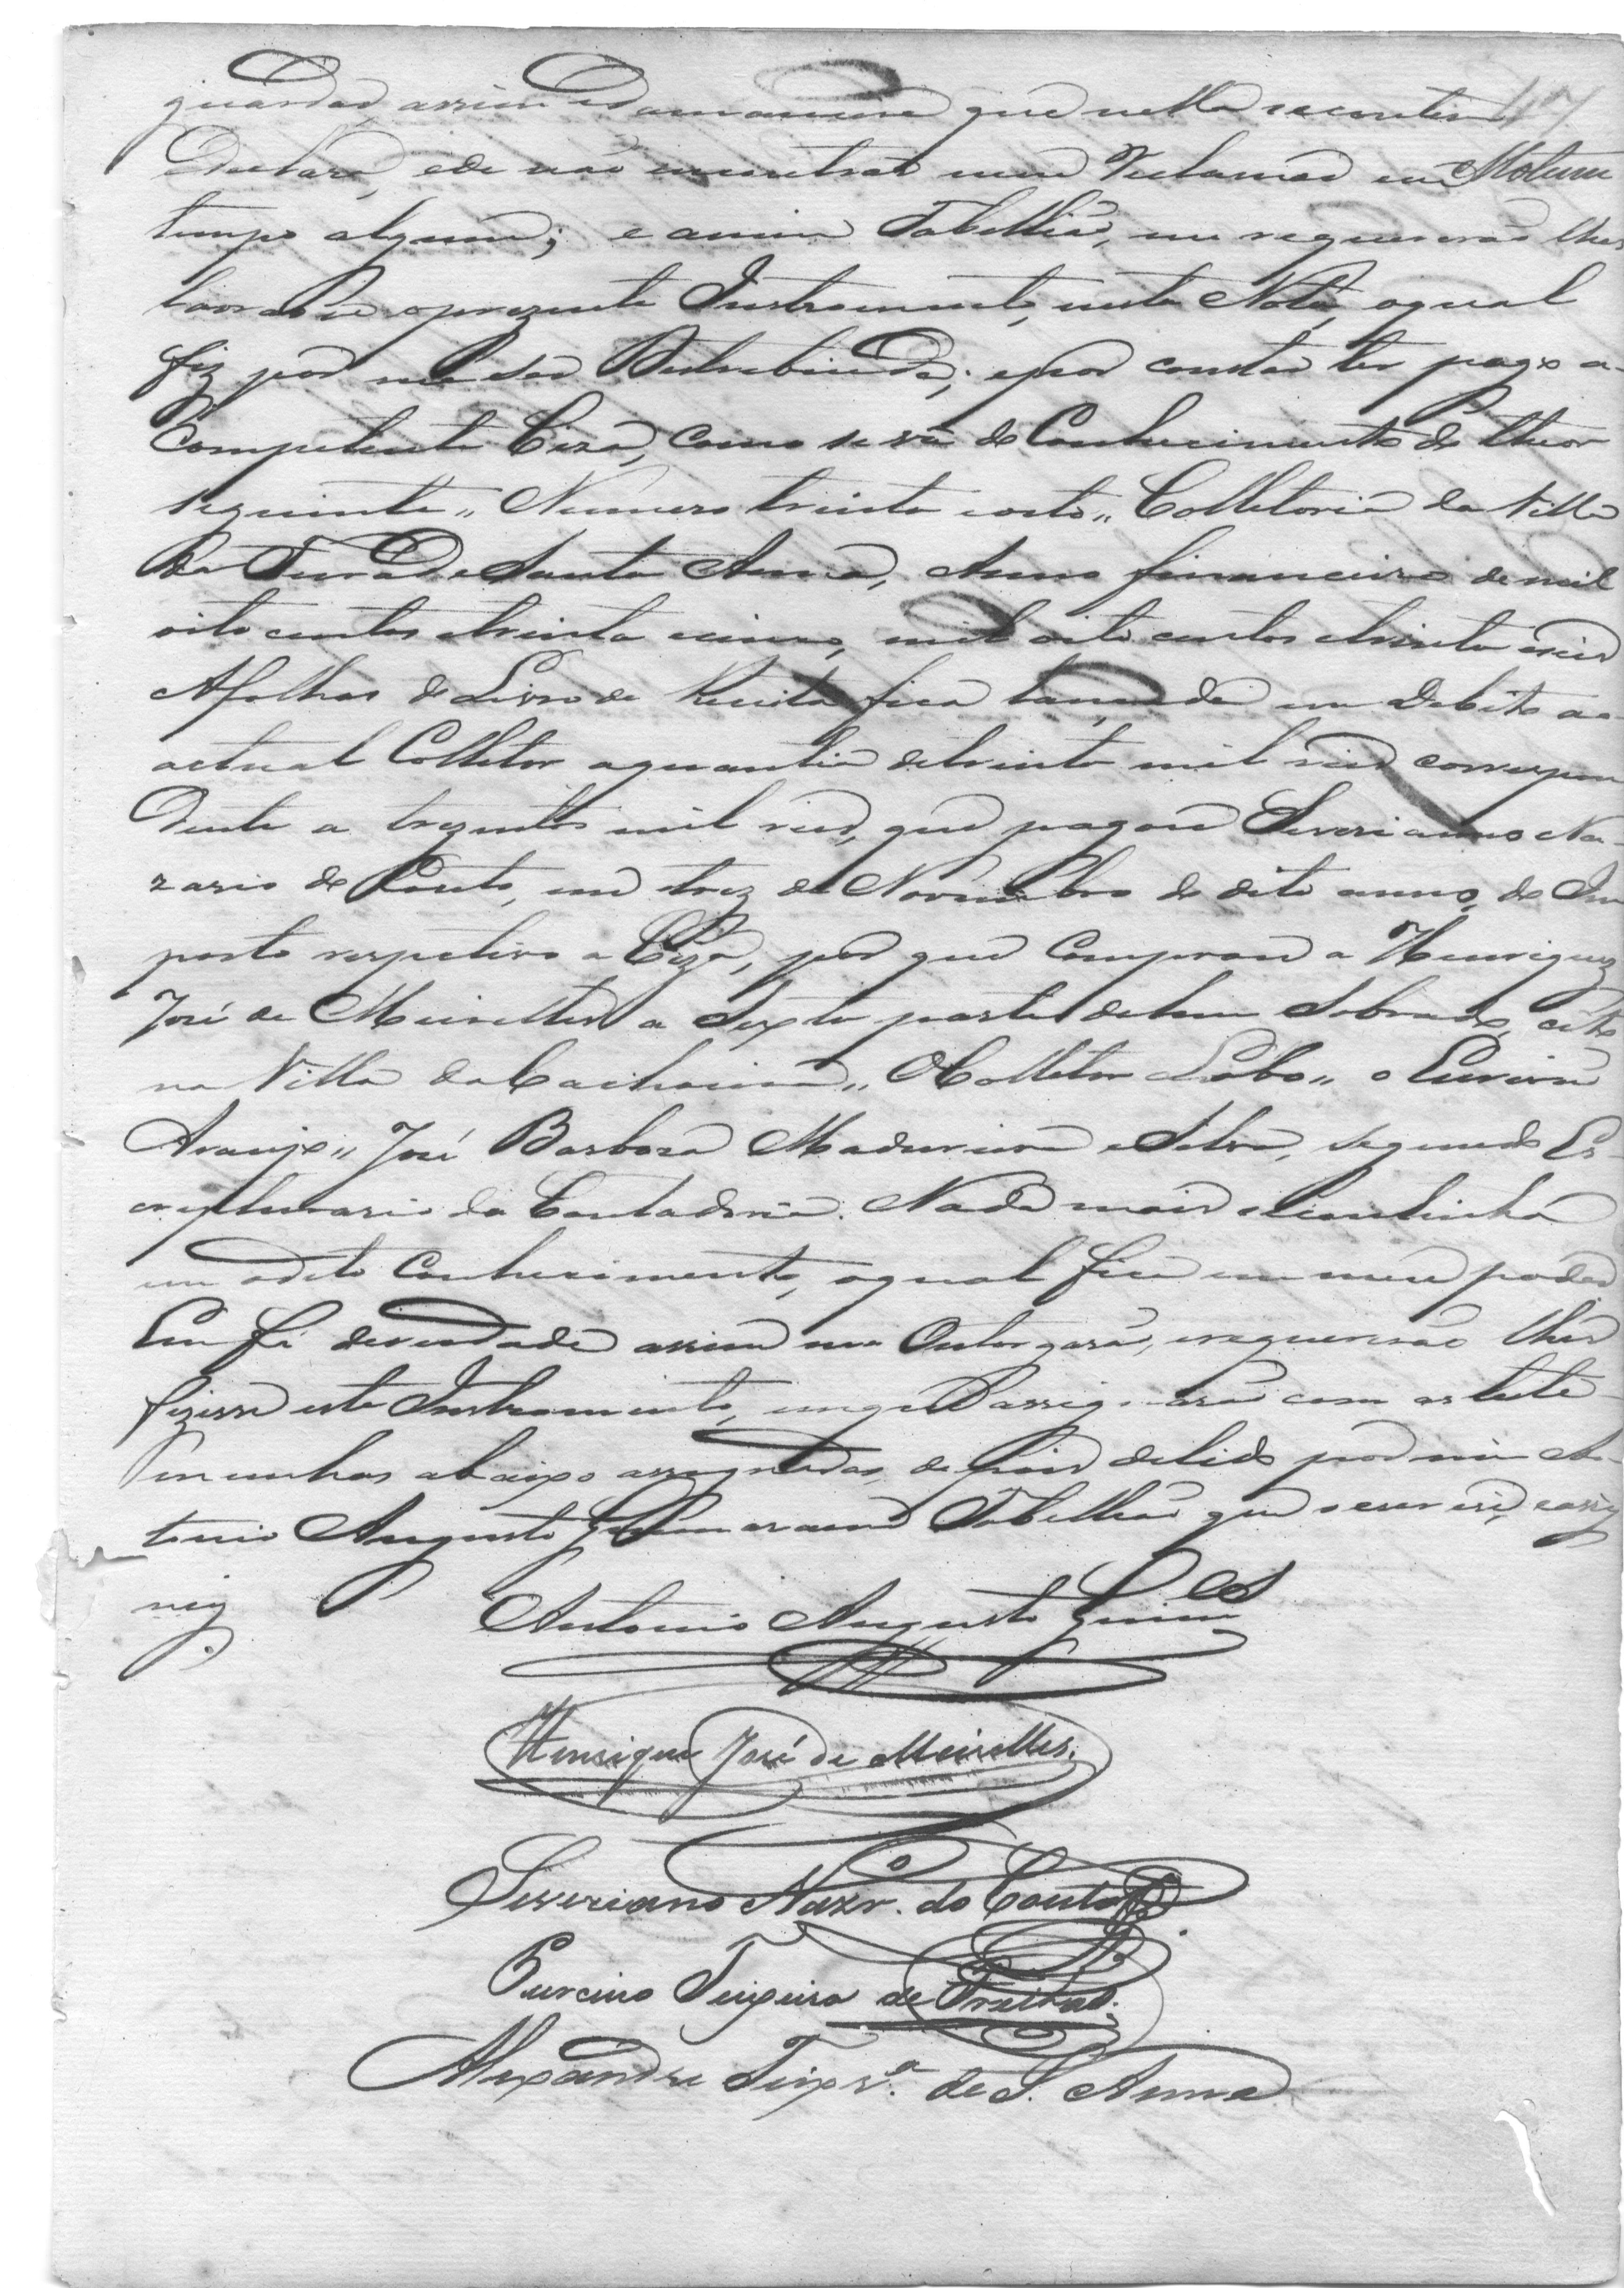 guardar, assim e damaneira que nella se contem 117
Declara, e de não encontrar nem Reclamar em Moturi
tempo algum; e a mim Tabellião, me requererão lhes
lavrasse o prezente Instromento, nesta Nota, o qual
fiz por me ser Destribuida; e por constar ter pago a
Competente Ciza, como se vê do Conhecimento do theor
seguinte,, Numero trinta e oito,, Colletoria da Villa
da Feira de Santa Anna, Anno financeiro de mil
oito centos e trinta e cinco, mil oito centos e trinta e seis
A folhas do Livro de Receita fica lançada em Debito ao
actual Colletor a quantia de trinta mil reis correspon
dente a trezentos mil reis, que pagou Severianno Na-
zario do Couto, em trez de Novembro do dito anno, do Im
posto respetivo a Ciza, por que Comprou a Henrique
José de Meirelles a Sexta parte de hum Sobrado, cito
na Villa da Cachoeira,, O Colletor Lobo,, o Escrivão
Araujo,, José Barbosa Madureira e Silva, segundo Es-
cripturario da Contadoria. Nada mais se continha
em o dito Conhecimento, o qual fica em meu poder
Em fé de verdade assim me Outorgarão, e requererão lhes
fizesse este Instromento, em que assignarão com as teste
munhas abaixo assignadas, depois de lido por mim An-
tonio Augusto Guimaraens Tabellião que o escrevi, e assig
nei
Antonio Augusto Guim.es
Henrique José de Meirelles.
Severiano Nazr.o do Couto
Purcino Teixeira de Freitas.
Alexandre Teixr.a de S. Anna